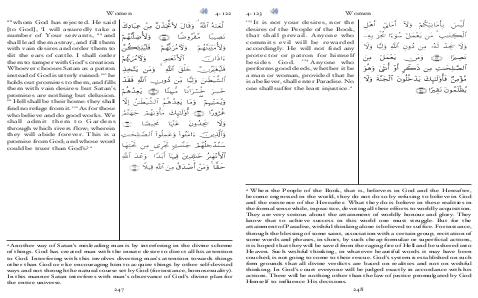 Women
4:122
¹¹⁸ whom God has rejected. He said
[to God], 'I will assuredly take a
number of Your servants, ¹¹⁹ and
shall lead them astray, and fill them
with vain desires and order them to
slit the ears of cattle. I shall order
them to tamper with God's creation.
Whoever chooses Satan as a patron
instead of God is utterly ruined: ¹²⁰ he
holds out promises to them, and fills
them with vain desires: but Satan's
promises are nothing but delusion.
¹²¹ Hell shall be their home: they shall
find no refuge from it.' ¹²² As for those
who believe and do good works, We
shall admit them to Gardens
through which rivers flow; wherein
they will abide forever. This is a
promise from God; and whose word
could be truer than God's?
لَّعَنَهُ ٱللَّهُ وَقَالَ لَأَتَّخِذَنَّ مِنْ عِبَادِكَ
نَصِيبًا مَّفْرُوضًا ۝ وَلَأُضِلَّنَّهُمْ
وَلَأُمَنِّيَنَّهُمْ وَلَآمُرَنَّهُمْ فَلَيُبَتِّكُنَّ
ءَاذَانَ ٱلْأَنْعَٰمِ وَلَآمُرَنَّهُمْ
فَلَيُغَيِّرُنَّ خَلْقَ ٱللَّهِ وَمَن يَتَّخِذِ
ٱلشَّيْطَٰنَ وَلِيًّا مِّن دُونِ ٱللَّهِ فَقَدْ
خَسِرَ خُسْرَانًا مُّبِينًا ۝ يَعِدُهُمْ
وَيُمَنِّيهِمْ وَمَا يَعِدُهُمُ ٱلشَّيْطَٰنُ إِلَّا
غُرُورًا ۝ أُو۟لَٰٓئِكَ مَأْوَىٰهُمْ جَهَنَّمُ
وَلَا يَجِدُونَ عَنْهَا مَحِيصًا ۝
وَٱلَّذِينَ ءَامَنُوا۟ وَعَمِلُوا۟ ٱلصَّٰلِحَٰتِ
سَنُدْخِلُهُمْ جَنَّٰتٍ تَجْرِى مِن تَحْتِهَا
ٱلْأَنْهَٰرُ خَٰلِدِينَ فِيهَآ أَبَدًا وَعْدَ ٱللَّهِ
حَقًّا وَمَنْ أَصْدَقُ مِنَ ٱللَّهِ قِيلًا ۝
Another way of Satan's misleading man is by interfering in the divine scheme
of things. God has created man with the innate desire to direct all his attention
to God. Interfering with this involves diverting man's attention towards things
other than God or else encouraging him to acquire things by other self-devised
ways and not through the natural course set by God (for instance, homosexuality).
In this manner Satan interferes with man's observance of God's divine plan for
the entire universe.
247
4:123
Women
¹²³ It is not your desires, nor the
desires of the People of the Book,
that shall prevail. Anyone who
commits evil will be rewarded
accordingly. He will not find any
protector or patron for himself
besides God. ¹²⁴ Anyone who
performs good deeds, whether it be
a man or woman, provided that he
is a believer, shall enter Paradise. No
one shall suffer the least injustice.
لَّيْسَ بِأَمَانِيِّكُمْ وَلَآ أَمَانِىِّ أَهْلِ
ٱلْكِتَٰبِ مَن يَعْمَلْ سُوٓءًا يُجْزَ بِهِۦ
وَلَا يَجِدْ لَهُۥ مِن دُونِ ٱللَّهِ وَلِيًّا وَلَا
نَصِيرًا ۝ وَمَن يَعْمَلْ مِنَ
ٱلصَّٰلِحَٰتِ مِن ذَكَرٍ أَوْ أُنثَىٰ وَهُوَ
مُؤْمِنٌ فَأُو۟لَٰٓئِكَ يَدْخُلُونَ ٱلْجَنَّةَ وَلَا
يُظْلَمُونَ نَقِيرًا ۝
When the People of the Book, that is, believers in God and the Hereafter,
become engrossed in the world, they do not do so by refusing to believe in God
and the existence of the Hereafter. What they do is believe in these realities in
the formal sense while, in practice, devoting all their efforts to worldly acquisition.
They are very serious about the attainment of worldly honour and glory. They
know that to achieve success in this world one must struggle. But for the
attainment of Paradise, wishful thinking alone is believed to suffice. For instance,
through the blessing of some saint, association with a certain group, recitation of
some words and phrases, in short, by such cheap formulae or superficial actions,
it is hoped that they will be saved from the raging fire of Hell and be ushered into
Heaven. Such wishful thinking, in whatever beautiful words it may have been
couched, is not going to come to their rescue. God's system is established on such
firm grounds that all divine verdicts are based on realities and not on wishful
thinking. In God's court everyone will be judged exactly in accordance with his
actions. There will be nothing other than the law of justice promulgated by God
Himself to influence His decisions.
248